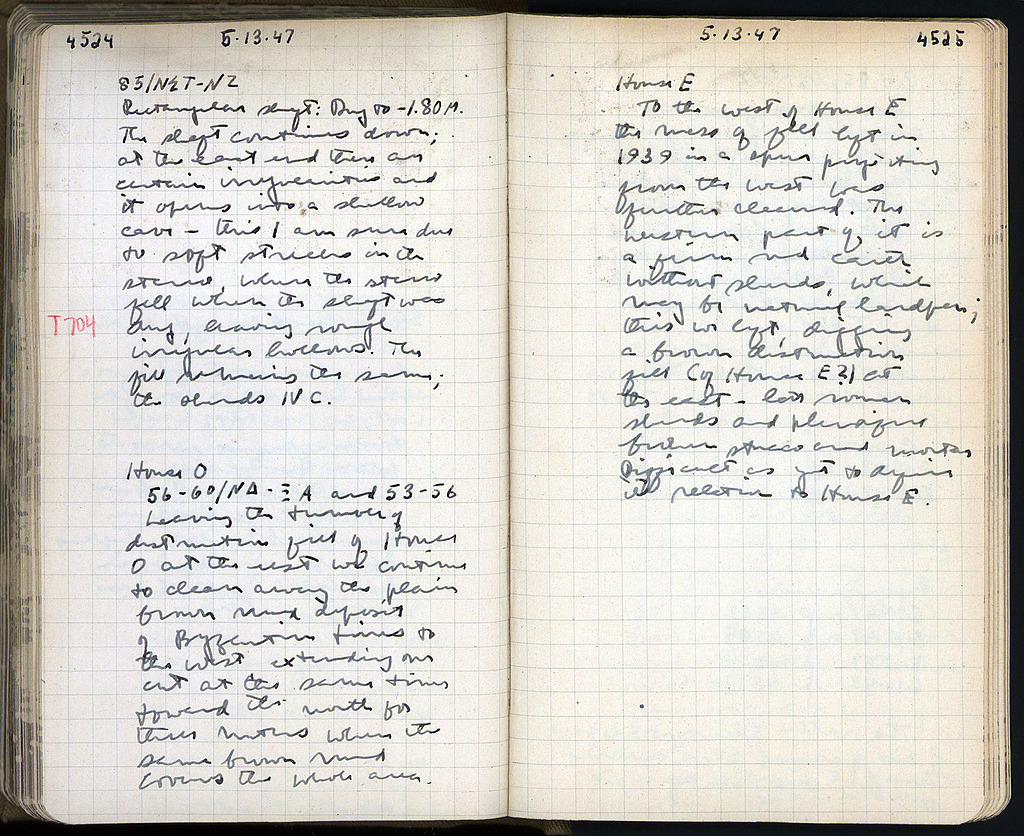 4524
5·13·47
85/ΝΣΤ-ΝΖ
Rectangular shaft: Dug to -1.80 M.
The shaft continues down;
at the east end there are
certain irregularities and
it opens into a shallow
cave – this I am sure due
to soft streaks in the
stereo, where the stereo
fell when the shaft was
dug, leaving rough
irregular hollows. The
fill remains the same;
the sherds IV C.
T704
House O
56-60/ΝΔ-ΞΑ and 53-56
Leaving the
destruction fill of House
O at the east we continue
to clean away the plain
brown mud deposit
of Byzantine times to
the west extending our
cut at the same time
toward the north for
three meters where the
same brown mud
covers the whole area.
5·13·47
4525
House E
To the west of House E
the mass of fill left in
1939 in a spur projecting
from the west was
further cleared. The
western part of it is
a firm red earth
without sherds, which
may be natural landfall;
this we left, digging
a brown destruction
fill (of House E?) at
the east – late roman
sherds and
broken stucco and mortar
Difficult as yet to define
its relation to House E.